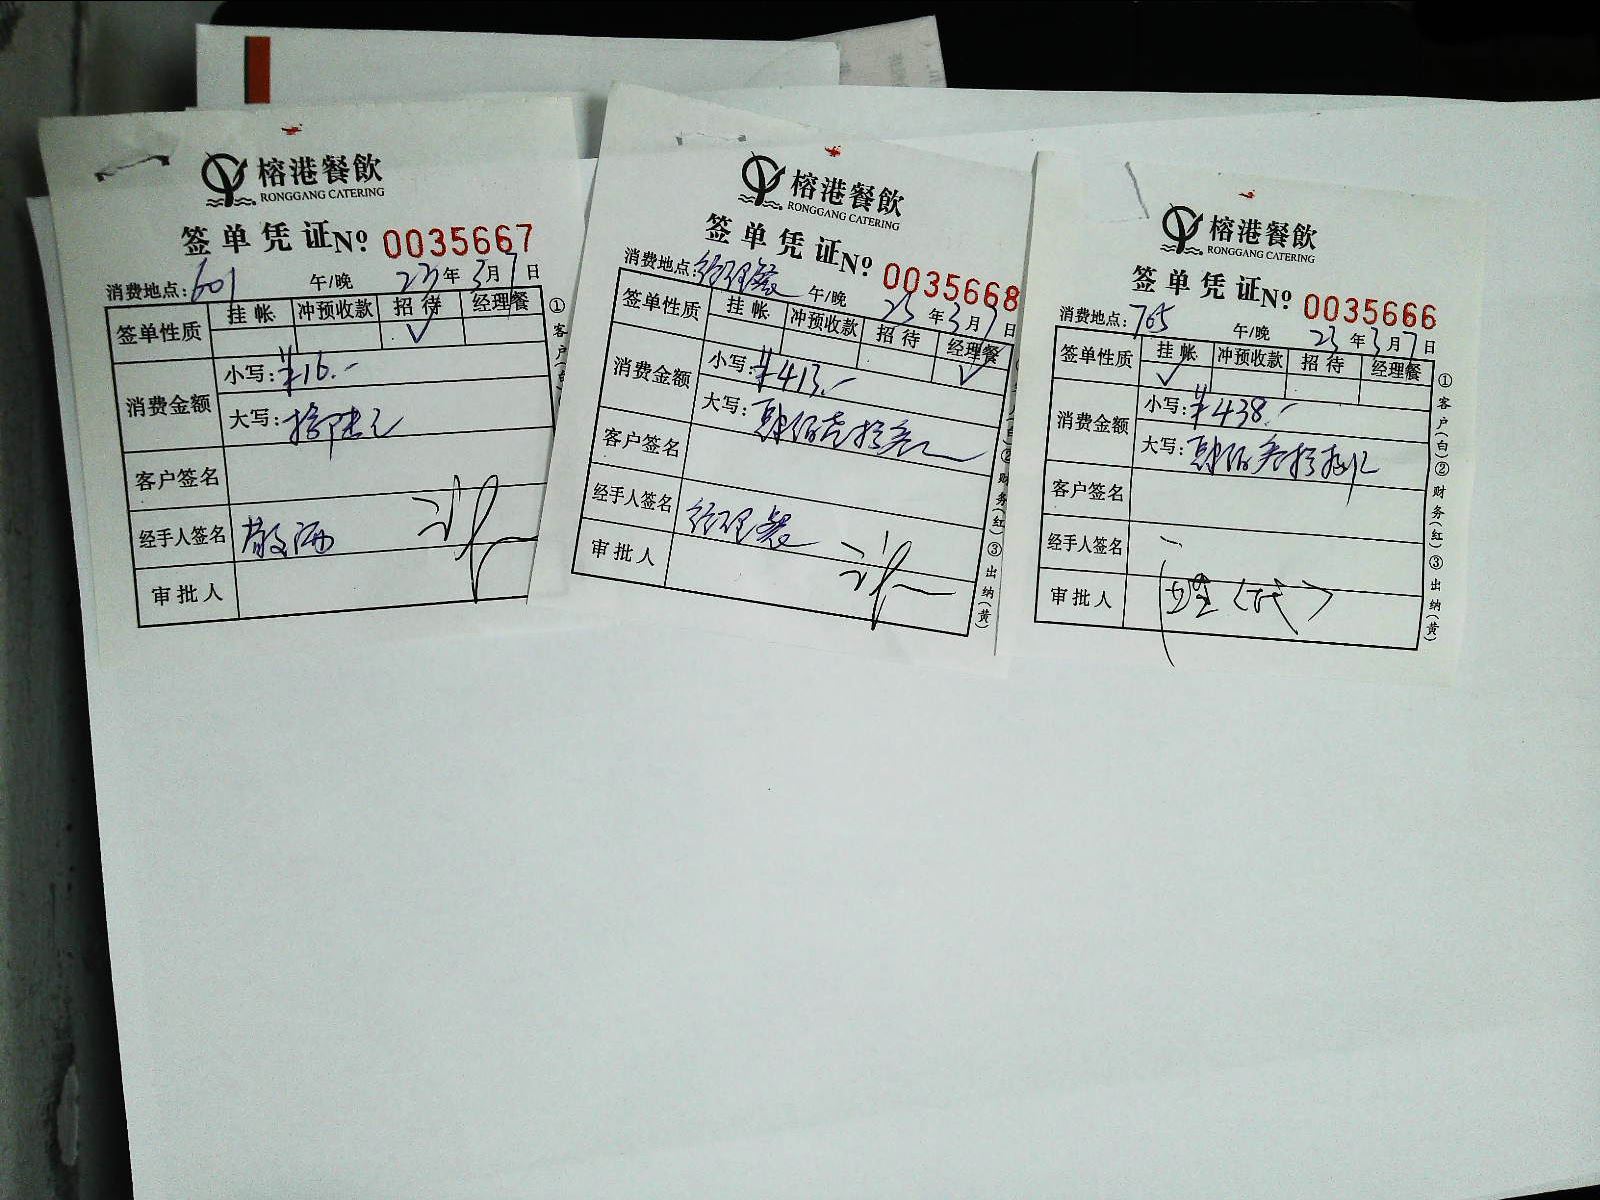 榕港餐飲
RONGGANG CATERING
签单凭证 No 0035667
消费地点: 601 午/晚 23年3月7日
签单性质 挂帐 冲预收款 招待 经理餐
✓
消费金额
小写: ¥16.-
大写: 拾陆元
客户签名
经手人签名
审批人
①客户
榕港餐飲
RONGGANG CATERING
签单凭证 No 0035668
消费地点: 经理餐 午/晚 23年3月7日
签单性质 挂帐 冲预收款 招待 经理餐
✓
消费金额
小写: ¥413.-
大写: 肆佰壹拾叁元
客户签名
经手人签名 经理餐
审批人
②财务(红)③出纳(黄)
榕港餐飲
RONGGANG CATERING
签单凭证 No 0035666
消费地点: 765 午/晚 23年3月7日
签单性质 挂帐 冲预收款 招待 经理餐
✓
消费金额
小写: ¥438.-
大写: 肆佰叁拾捌元
客户签名
经手人签名
审批人 (代)
①客户(白)②财务(红)③出纳(黄)